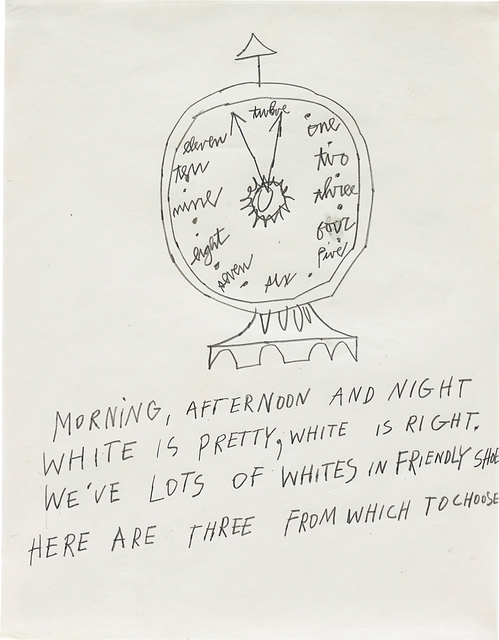 twelve
one
two
three
four
five
six
seven
eight
nine
ten
eleven
MORNING, AFTERNOON AND NIGHT
WHITE IS PRETTY, WHITE IS RIGHT.
WE'VE LOTS OF WHITES IN FRIENDLY SHOE
HERE ARE THREE FROM WHICH TO CHOOSE